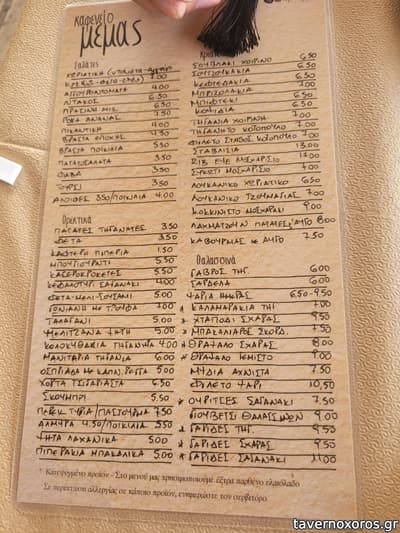 καφενείο
μέμας
Σαλάτες
ΧΩΡΙΑΤΙΚΗ
7.00
ΑΓΓΟΥΡΟΝΤΟΜΑΤΑ 4.00
ΛΙΤΑΚΟΣ 6.50
ΠΡΑΣΙΝΗ ΜΙΞ 6.50
ΡΟΚΑ 7.50
ΠΙΚΑΝΤΙΚΗ 4.00
ΒΡΑΣΤΑ ΕΠΟΧΗΣ 4.50
ΒΡΑΣΤΑ ΠΟΙΚΙΛΙΑ 5.50
ΠΑΤΑΤΟΣΑΛΑΤΑ 3.50
ΦΑΒΑ 3.50
ΤΟΥΡΣΙ 3.50
ΑΛΟΙΦΕΣ 3.50/ΠΟΙΚΙΛΙΑ 4.00
Ορεκτικά
ΠΑΤΑΤΕΣ ΤΗΓΑΝΗΤΕΣ 3.50
ΦΕΤΑ 3.50
ΚΑΥΤΕΡΗ ΠΙΠΕΡΙΑ 1.50
ΜΠΟΥΓΙΟΥΡΝΤΙ 5.50
ΚΑΣΕΡΟΚΡΟΚΕΤΕΣ 5.50
ΚΕΦΑΛΟΤΥΡΙ ΣΑΓΑΝΑΚΙ 4.00
ΦΕΤΑ-ΜΕΛΙ-ΣΟΥΣΑΜΙ 5.00
ΤΑΛΑΓΑΝΙ 5.00
ΜΕΛΙΤΖΑΝΑ ΨΗΤΗ 5.00
ΚΟΛΟΚΥΘΑΚΙΑ ΤΗΓΑΝΗΤΑ 4.00
ΜΑΝΙΤΑΡΙΑ ΤΗΓΑΝΙΑ 6.00
ΟΣΠΡΙΑΔΑ ΜΕ ΚΑΠΝ. ΡΕΓΓΑ 5.00
ΧΟΡΤΑ ΤΣΙΓΑΡΙΑΣΤΑ 6.50
ΣΚΟΥΜΠΡΙ 5.50
ΤΥΡΙΑ/ΠΑΣΤΟΥΡΜΑ 7.50
ΑΛΜΥΡΑ 4.50/ΠΟΙΚΙΛΙΑ 5.50
ΨΗΤΑ ΛΑΧΑΝΙΚΑ 5.00
ΠΙΠΕΡΑΚΙΑ ΜΠΑΛΚΑΝΙΚΑ 5.00
ΣΟΥΒΛΑΚΙ ΧΟΙΡΙΝΟ 6.50
ΣΟΥΤΖΟΥΚΑΚΙΑ 6.50
ΚΕΦΤΕΔΑΚΙΑ 6.50
ΜΠΡΙΖΟΛΑΚΙΑ 6.50
ΜΠΙΦΤΕΚΙ 6.50
6.50
ΤΗΓΑΝΙΑ ΧΟΙΡΙΝΗ 7.00
ΤΗΓΑΝΗΤΟ ΚΟΤΟΠΟΥΛΟ 7.00
ΦΙΛΕΤΟ ΣΤΗΘΟΣ ΚΟΤΟΠΟΥΛΟ 7.00
ΣΤΑΒΛΙΣΙΑ 13.00
RIB EYE ΜΟΣΧΑΡΙΣΙΟ
ΣΥΚΩΤΙ ΜΟΣΧΑΡΙΣΙΟ 7.00
ΛΟΥΚΑΝΙΚΟ ΧΩΡΙΑΤΙΚΟ 6.50
ΛΟΥΚΑΝΙΚΟ ΤΖΟΥΜΑΓΙΑΣ 7.00
ΚΟΚΚΙΝΙΣΤΟ ΜΟΣΧΑΡΑΚΙ 9.00
ΛΑΧΜΑΤΖΟΥΝ ΠΑΤΑΤΕΣ ΑΥΓΟ 8.00
ΚΑΒΟΥΡΜΑΣ με ΑΥΓΟ 7.50
Θαλασσινά
ΓΑΒΡΟΣ ΤΗΓ. 6.00
ΣΑΡΔΕΛΑ 6.00
ΨΑΡΙΑ ΗΜΕΡΑΣ 6.50-9.50
* ΚΑΛΑΜΑΡΑΚΙΑ ΤΗΓ 7.00
* ΧΤΑΠΟΔΙ ΣΧΑΡΑΣ 9.50
* ΜΠΑΚΑΛΙΑΡΟΣ ΣΚΟΡΔ. 7.50
* ΘΡΑΨΑΛΟ ΣΧΑΡΑΣ 8.00
* ΘΡΑΨΑΛΟ ΓΕΜΙΣΤΟ 9.00
ΜΥΔΙΑ ΑΧΝΙΣΤΑ 7.50
ΦΙΛΕΤΟ ΨΑΡΙ 10,50
* ΦΟΥΡΙΤΣΕΣ ΣΑΓΑΝΑΚΙ 7.50
ΓΙΟΥΒΕΤΣΙ ΘΑΛΑΣΣΙΝΩΝ 9.00
* ΓΑΡΙΔΕΣ ΤΗΓ. 9.50
* ΓΑΡΙΔΕΣ ΣΧΑΡΑΣ 9.50
* ΓΑΡΙΔΕΣ ΣΑΓΑΝΑΚΙ 11.00
* Κατεψυγμένο προϊόν - Στο μενού μας χρησιμοποιούμε έξτρα παρθένο ελαιόλαδο
Σε περίπτωση αλλεργίας σε κάποιο προϊόν, ενημερώστε τον σερβιτόρο
tavernoxoros.gr